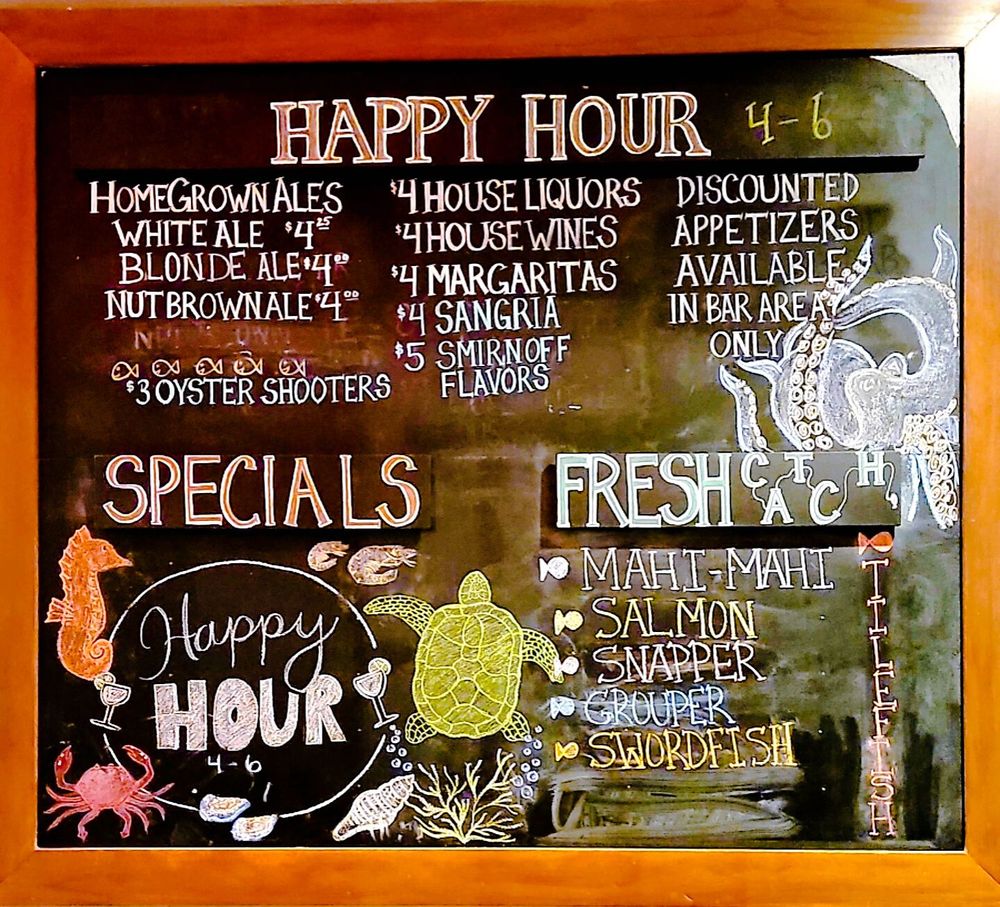 HAPPY HOUR 4-6
HOMEGROWN ALES
WHITE ALE $4.25
BLONDE ALE $4.00
NUT BROWN ALE $4.00
$3 OYSTER SHOOTERS
$4 HOUSE LIQUORS
$4 HOUSE WINES
$4 MARGARITAS
$4 SANGRIA
$5 SMIRNOFF
FLAVORS
DISCOUNTED
APPETIZERS
AVAILABLE
IN BAR AREA
ONLY
SPECIALS
Happy
HOUR
4-6
FRESH CATCH
MAHI-MAHI
SALMON
SNAPPER
GROUPER
SWORDFISH
TILEFISH